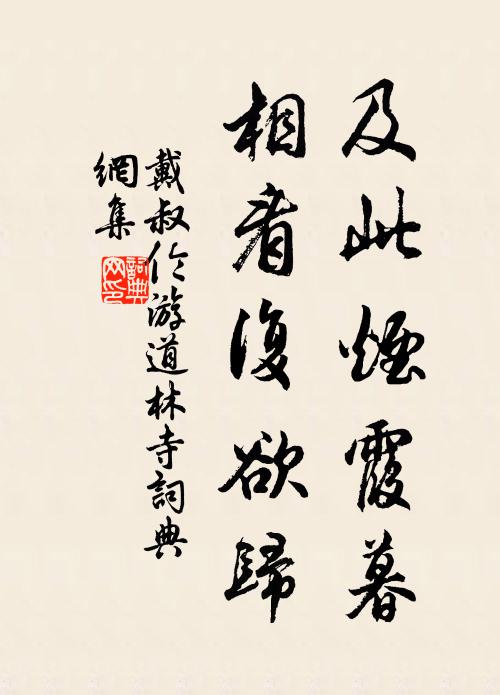 及此煙霞暮
相看復欲歸
戴叔伦游道林寺詞典
網集
詞典網印